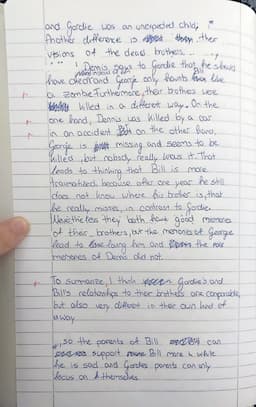 and Gordie was an unexpected child."
Another difference is their
visions of the dead brothers...
" ... Dennis says to Gordie that he should
have died and Georgie only haunts him like
a zombie. Furthermore, their brothers were
killed in a different way. On the
one hand, Dennis was killed by a car
in an accident. But on the other hand,
Georgie is missing and seems to be
killed, but nobody really knows it. That
leads to thinking that Bill is more
traumatized because after one year he still
does not know where his brother is, that
he really misses, in contrast to Gordie.
Nevertheless they both have good memories
of their brothers, but the memories of Georgie
lead to loving him and the
memories of Dennis did not.
To summarize, I think Gordie's and
Bill's relationships to their brothers are comparable,
but also very different in their own kind of
way.
, so the parents of Bill can
support Bill more while
he is sad and Gordies parents can only
focus on themselves.